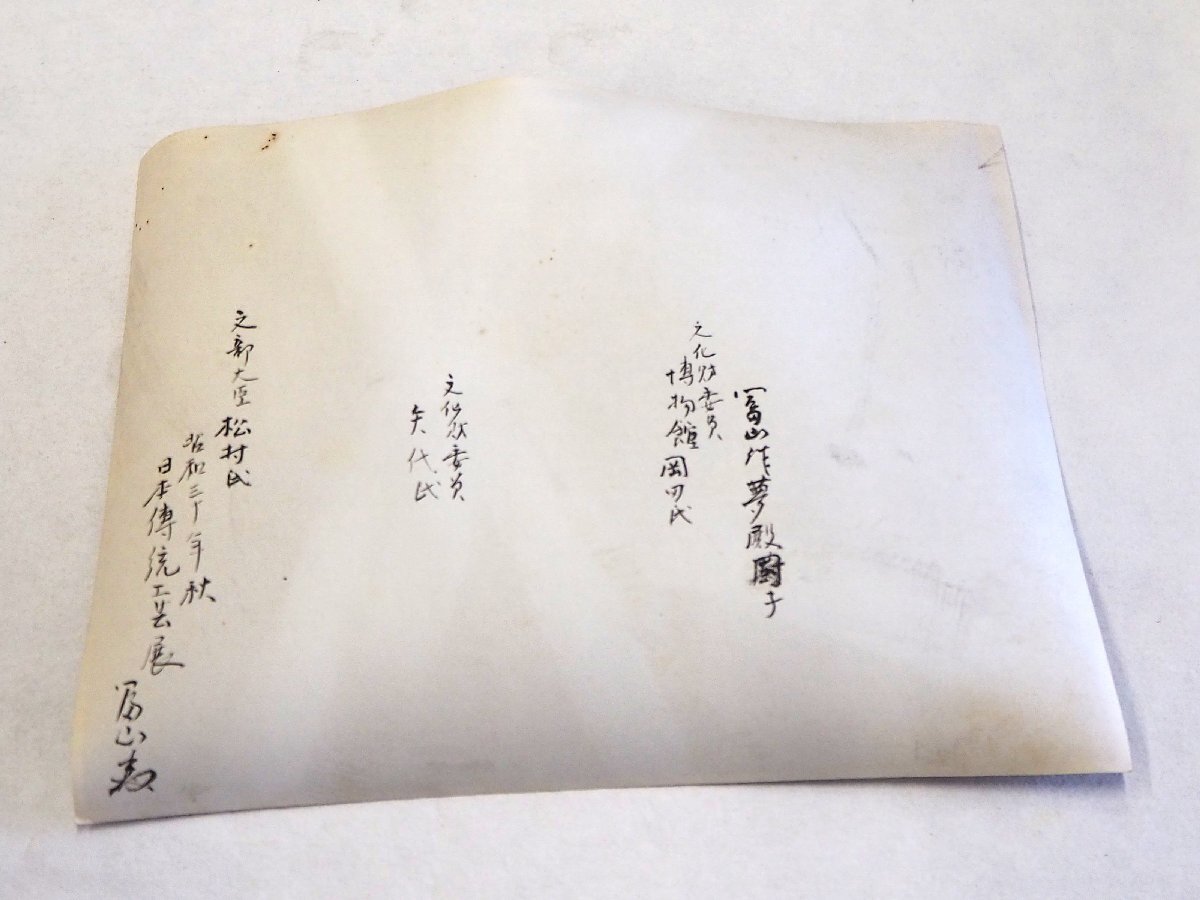 冨山作夢殿厨子
文化財委員
博物館 岡田氏
文化財委員
矢代氏
文部大臣 松村氏
昭和三十年秋
日本傳統工芸展
冨山